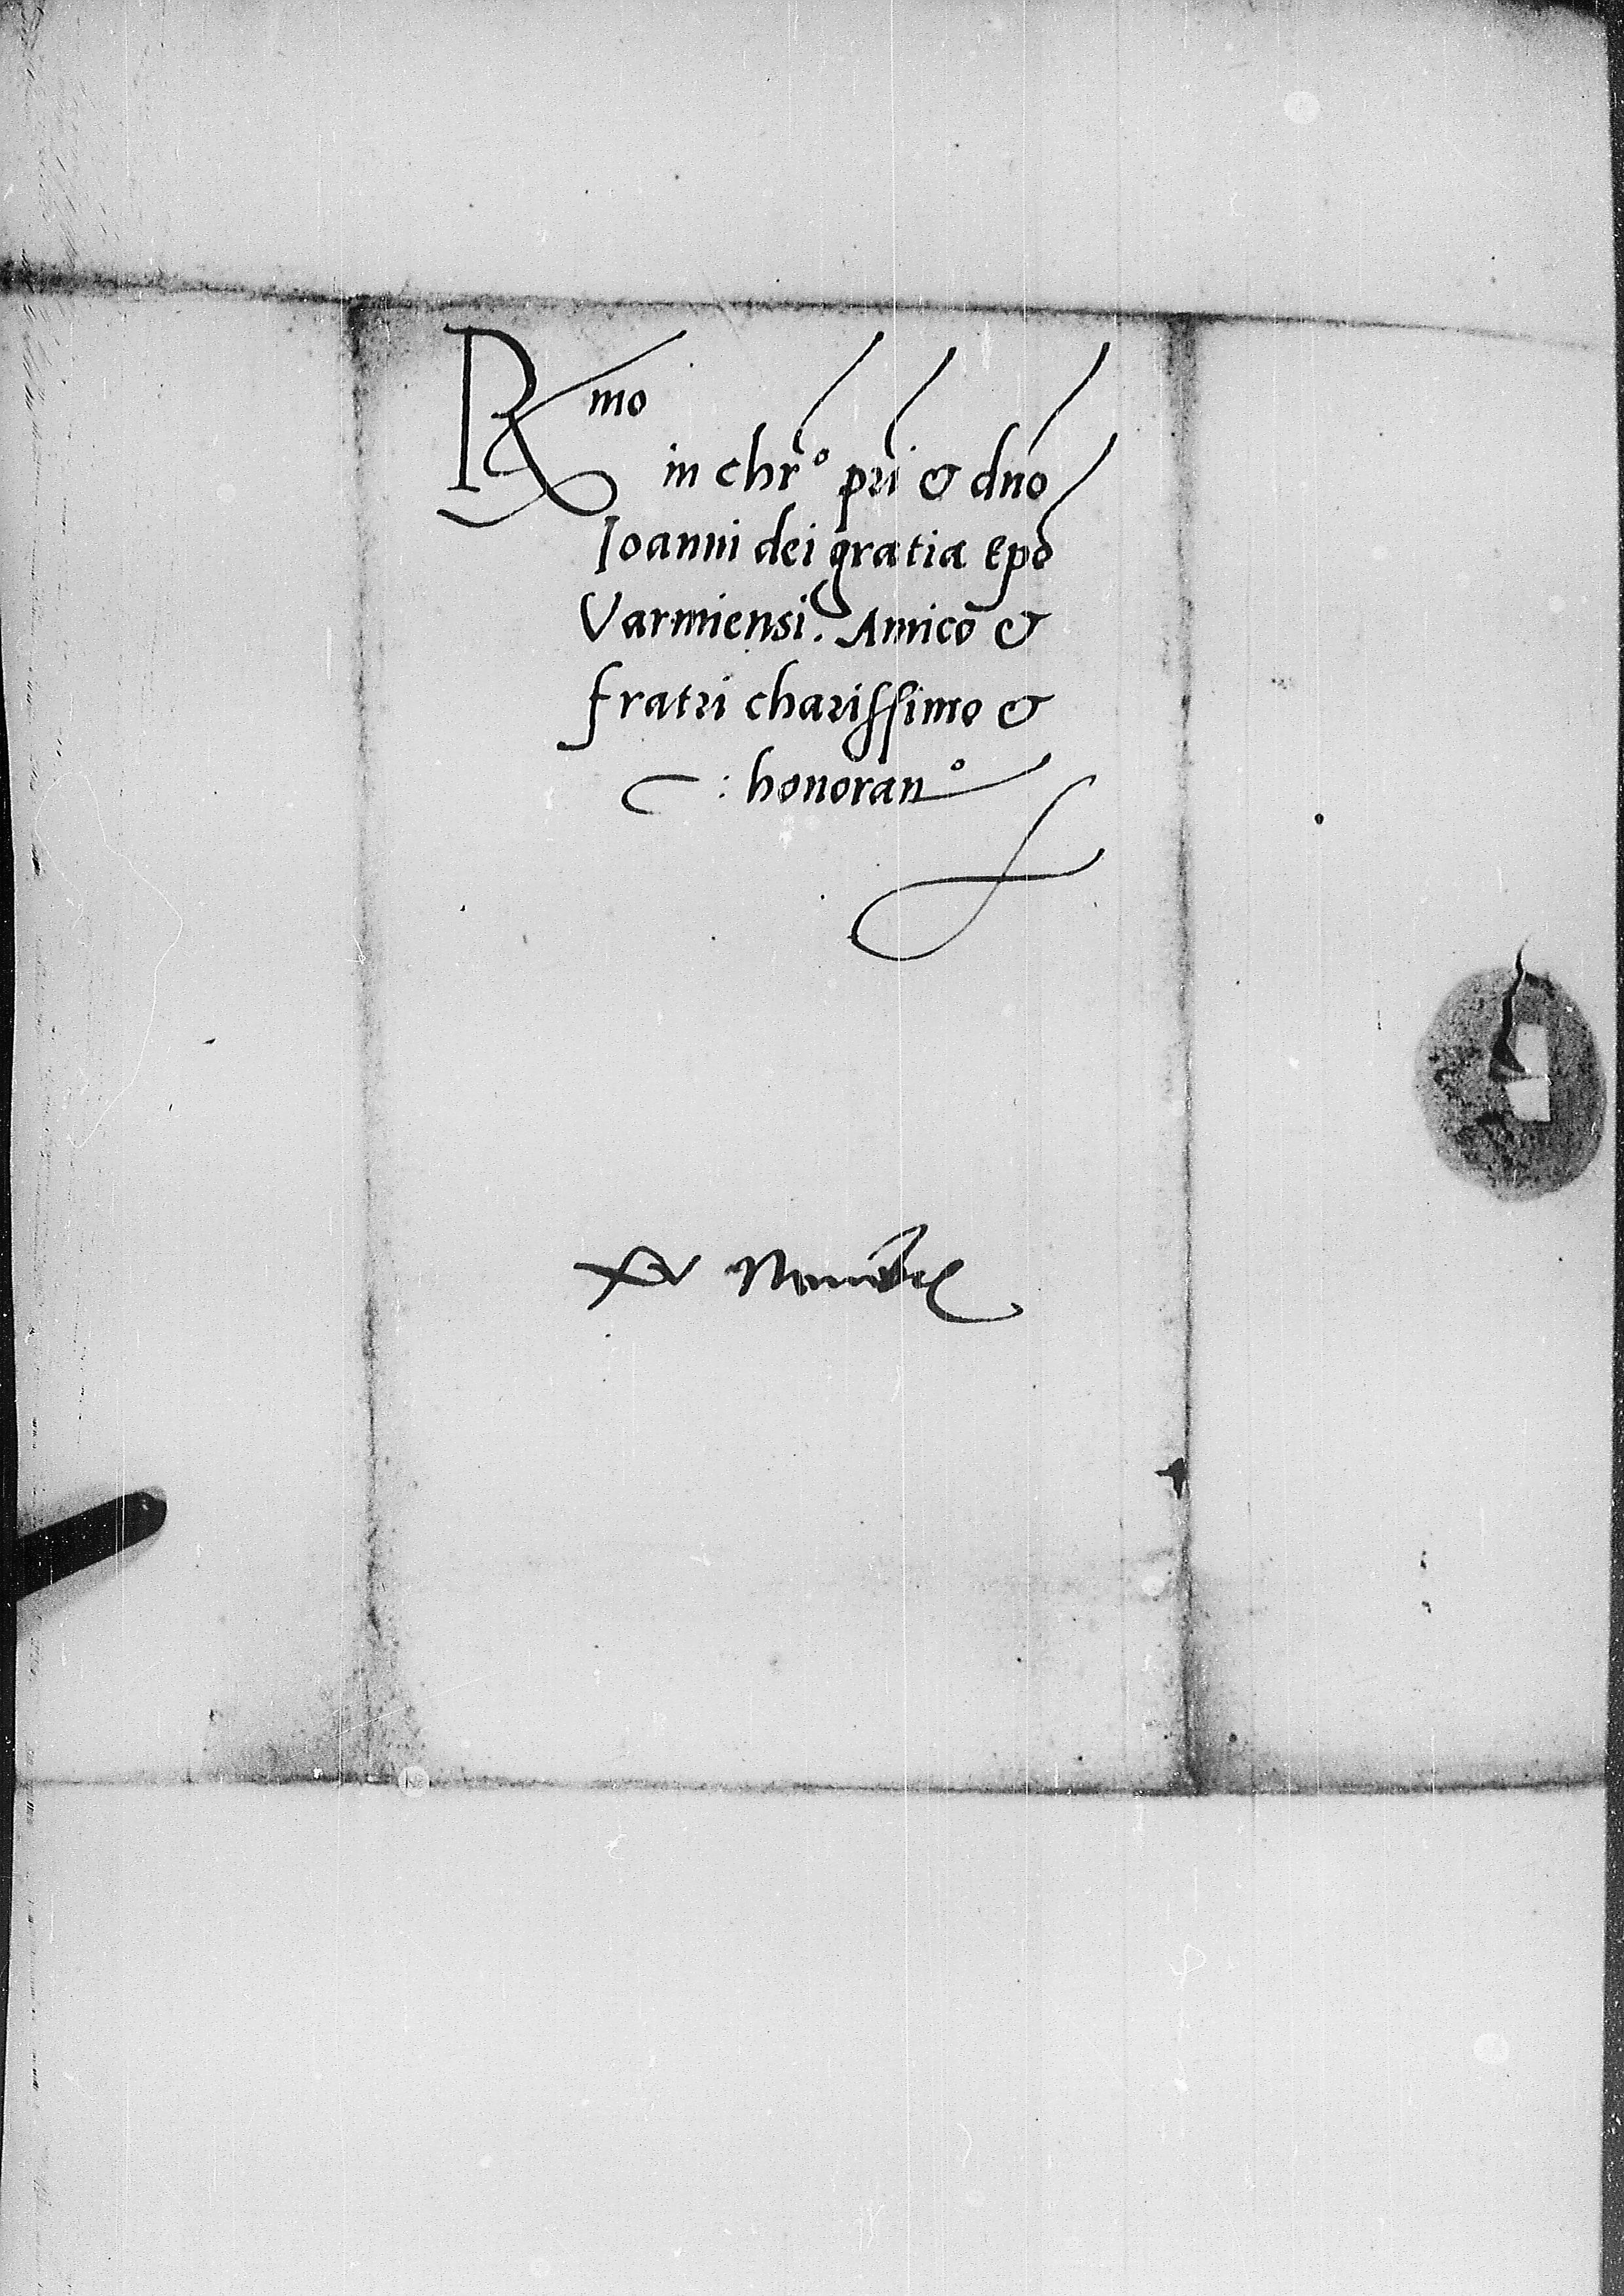 R mo
in chr̄o pri & dno
Ioanni dei gratia Epo
Varmiensi. Amico &
fratri charissimo &
: honoran o
xv Nouembr